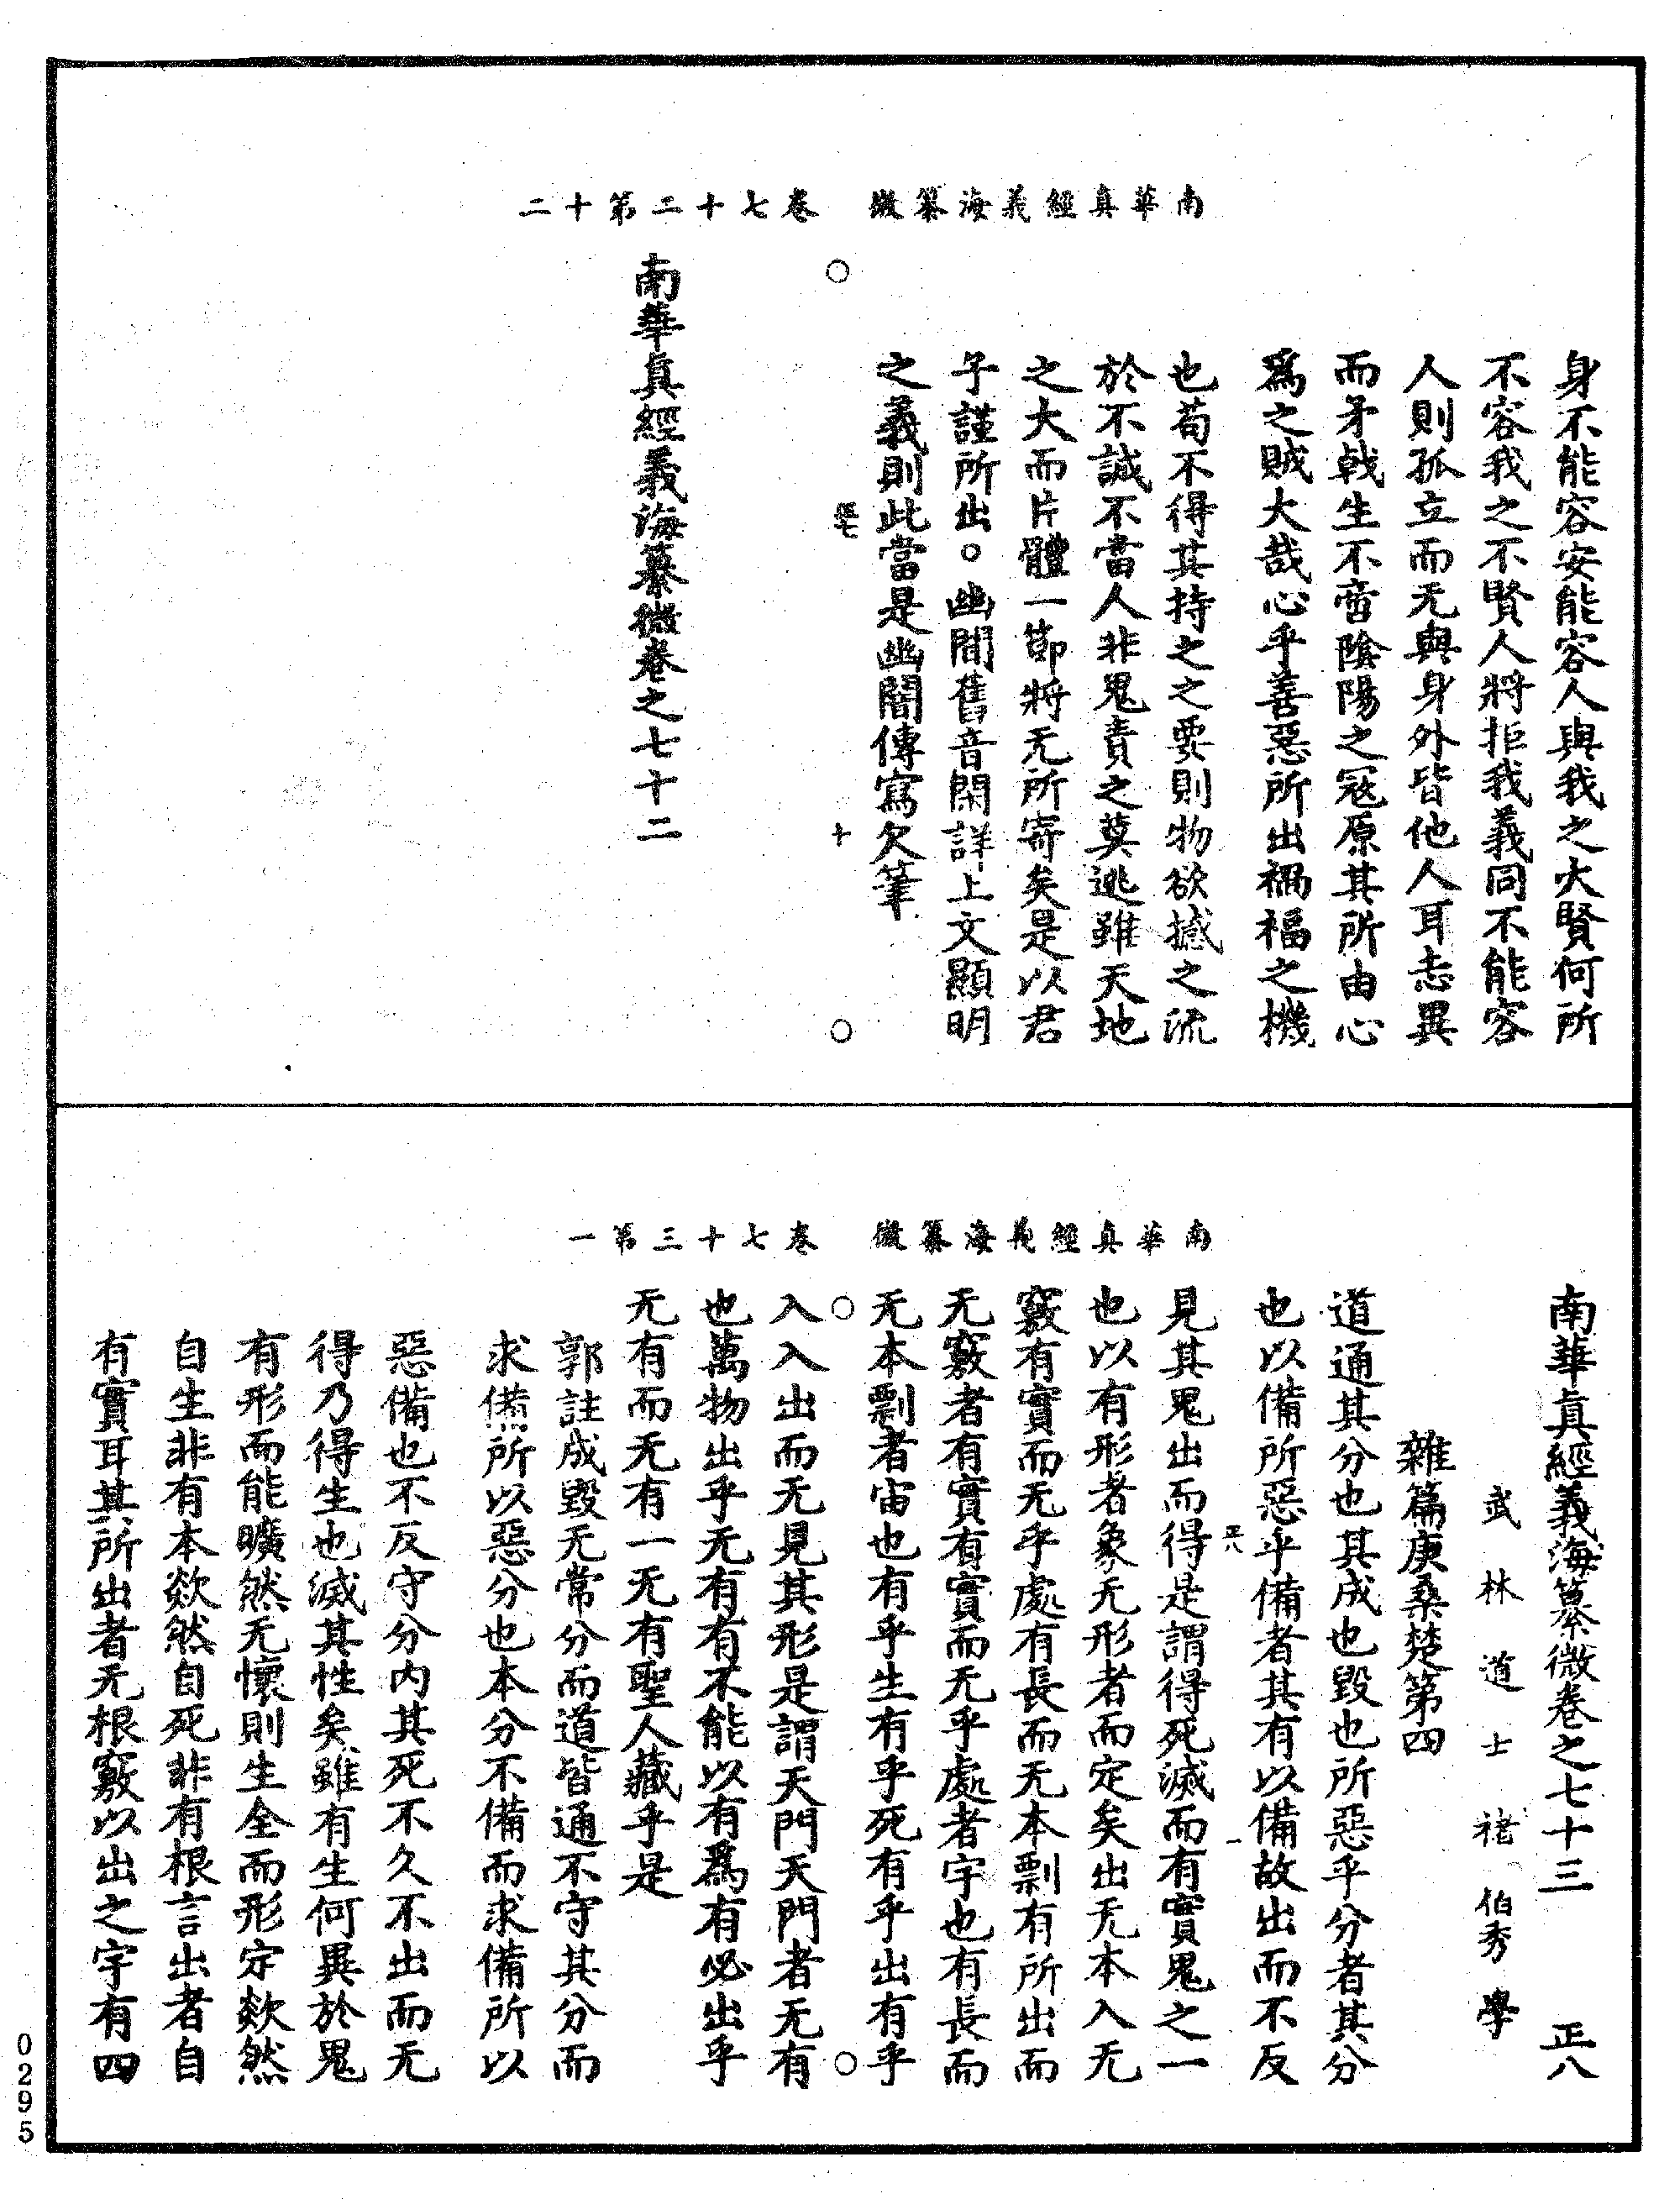 南華真經義海纂微　卷七十二第十二
身不能容安能容人與我之大賢何所
不容我之不賢人將拒我義同不能容
人則孤立而无與身外皆他人耳志異
而矛戟生不啻陰陽之冦原其所由心
爲之賊大哉心乎善惡所出禍福之機
也苟不得其持之之要則物欲撼之流
於不誠不當人非鬼責之莫逃雖天地
之大而片體一節將无所寄矣是以君
子謹所出○幽間舊音閑詳上文顯明
之義則此當是幽闇傳寫欠筆
十
南華真經義海纂微卷之七十二
南華真經義海纂微　卷七十三第一
南華真經義海纂微卷之七十三　正八
武林道士褚伯秀學
雜篇庚桑楚第四
道通其分也其成也毀也所惡乎分者其分
也以備所惡乎備者其有以備故出而不反
正八　一
見其鬼出而得是謂得死滅而有實鬼之一
也以有形者象无形者而定矣出无本入无
竅有實而无乎處有長而无本剽有所出而
无竅者有實有實而无乎處者宇也有長而
无本剽者宙也有乎生有乎死有乎出有乎
入入出而无見其形是謂天門天門者无有
也萬物出乎无有有不能以有爲有必出乎
无有而无有一无有聖人藏乎是
郭註成毀无常分而道皆通不守其分而
求備焉所以惡分也本分不備而求備所以
惡備也不反守分内其死不久不出而无
得乃得生也滅其性矣雖有生何異於鬼
有形而能曠然无懷則生全而形定欻然
自生非有本欻然自死非有根言出者自
有實耳其所出者无根竅以出之宇有四
0295